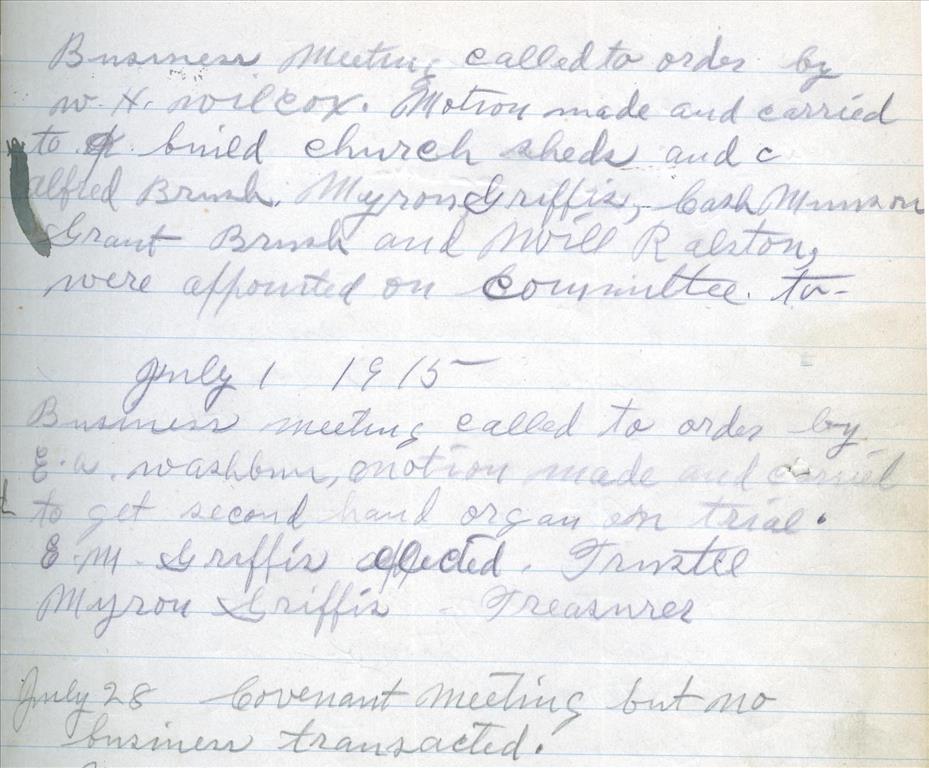 Business Meeting called to order by
W. H. Wilcox. Motion made and carried
to build church sheds and c
Alfred Brush, Myron Griffis, Cash Munson
Grant Brush and Will Ralston,
were appointed on Committee. to-
July 1 1915
Business meeting called to order by
E. A. Washburn, motion made and carried
to get second hand organ on trial.
E. M. Griffis elected. Trustee
Myron Griffis - Treasurer
July 28 Covenant Meeting but no
business transacted.